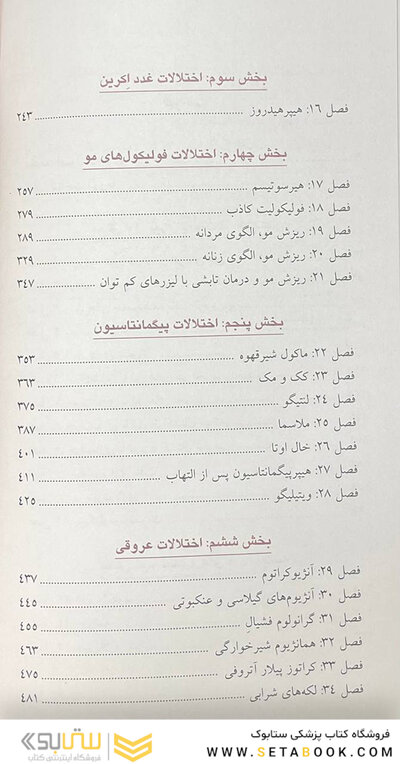 بخش سوم: اختلالات غدد اِکرین
فصل ۱۶: هیپرهیدروز ........ ۲۴۳
بخش چهارم: اختلالات فولیکول‌های مو
فصل ۱۷: هیرسوتیسم ........ ۲۵۷
فصل ۱۸: فولیکولیت کاذب ........ ۲۷۹
فصل ۱۹: ریزش مو، الگوی مردانه ........ ۲۸۹
فصل ۲۰: ریزش مو، الگوی زنانه ........ ۳۲۹
فصل ۲۱: ریزش مو و درمان تابشی با لیزرهای کم توان ........ ۳۴۷
بخش پنجم: اختلالات پیگمانتاسیون
فصل ۲۲: ماکول شیرقهوه ........ ۳۵۳
فصل ۲۳: کک و مک ........ ۳۶۳
فصل ۲۴: لنتیگو ........ ۳۷۵
فصل ۲۵: ملاسما ........ ۳۸۷
فصل ۲۶: خال اوتا ........ ۴۰۱
فصل ۲۷: هیپرپیگمانتاسیون پس از التهاب ........ ۴۱۱
فصل ۲۸: ویتیلیگو ........ ۴۲۵
بخش ششم: اختلالات عروقی
فصل ۲۹: آنژیوکراتوم ........ ۴۳۷
فصل ۳۰: آنژیوم‌های گیلاسی و عنکبوتی ........ ۴۴۵
فصل ۳۱: گرانولوم فشیالِ ........ ۴۵۵
فصل ۳۲: همانژیوم شیرخوارگی ........ ۴۶۳
فصل ۳۳: کراتوز پیلار آتروفی ........ ۴۷۵
فصل ۳۴: لکه‌های شرابی ........ ۴۸۱
فروشگاه کتاب پزشکی ستابوک
WWW.SETABOOK.COM
ستابوک
فروشگاه اینترنتی کتاب